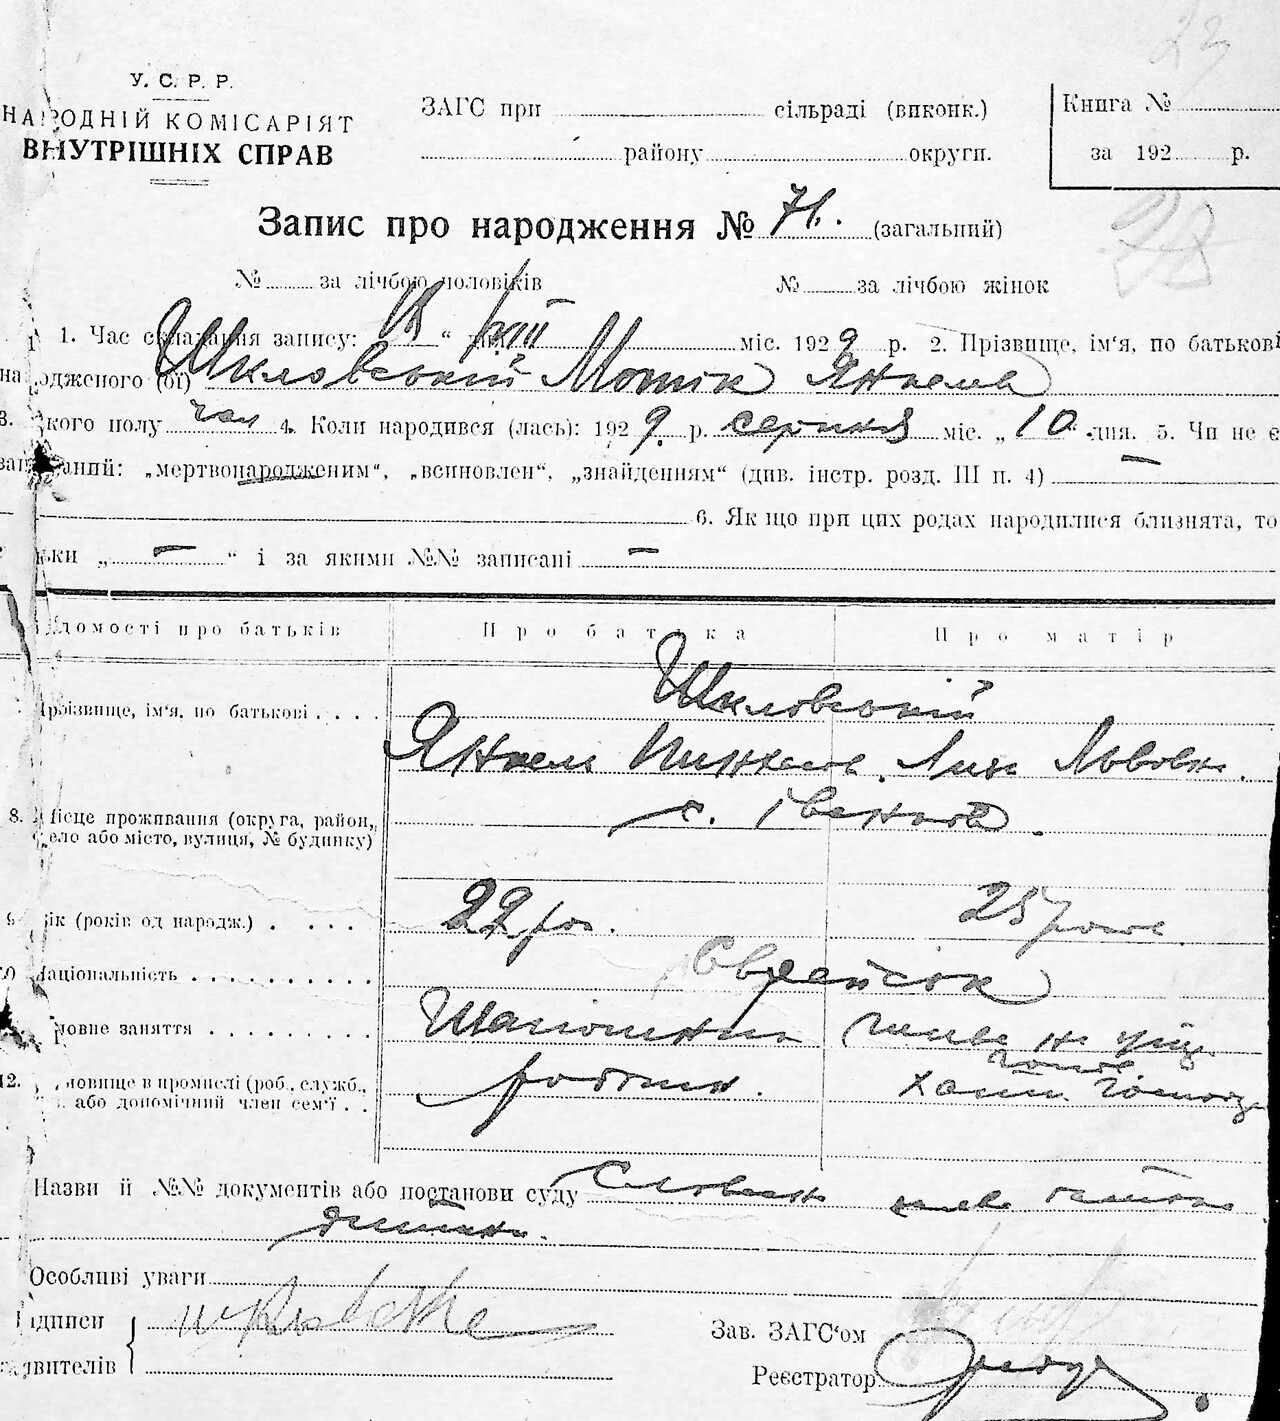 23
У. С. Р. Р.
НАРОДНІЙ КОМІСАРІЯТ
ВНУТРІШНІХ СПРАВ
ЗАГС при сільраді (виконк.)
району округи.
Книга №
за 192 р.
Запис про народження № 71. (загальний)
28
№ за лічбою чоловіків № за лічбою жінок
1. Час складання запису: “ дня VIII міс. 1929 р. 2. Прізвище, ім‘я, по батькові
народженого (ої) Шкловський Мотік Янкелев
3. якого полу чол 4. Коли народився (лась): 1929 р. серпня міс. „10“ дня. 5. Чи не є
записаний: „мертвонародженим“, „всиновлен“, „знайденням“ (див. інстр. розд. III п. 4) —
6. Як що при цих родах народилися близнята, то
„ — “ і за якими №№ записані —
Відомості про батьків Про батька Про матір
Шкловський
Прізвище, ім‘я, по батькові . . . .
Янкель Пинхасов. Лиза Львовна.
8. Місце проживання (округа, район, с. Іванків.
село або місто, вулиця, № будинку)
9 Вік (років од народж.) . . . . 22 рок. 25 років
10 Національність . . . . . . . . . . Єврейськ
Головне заняття . . . . . . . .
12. Становище в промислі (роб., служб.,
або допомічний член сем‘ї . .
робітн. хатн. господ
Назви й №№ документів або постанови суду Словесн заява батька
дитини.
Особливі уваги
Підписи
заявителів
Зав. ЗАГС‘ом
Реєстратор